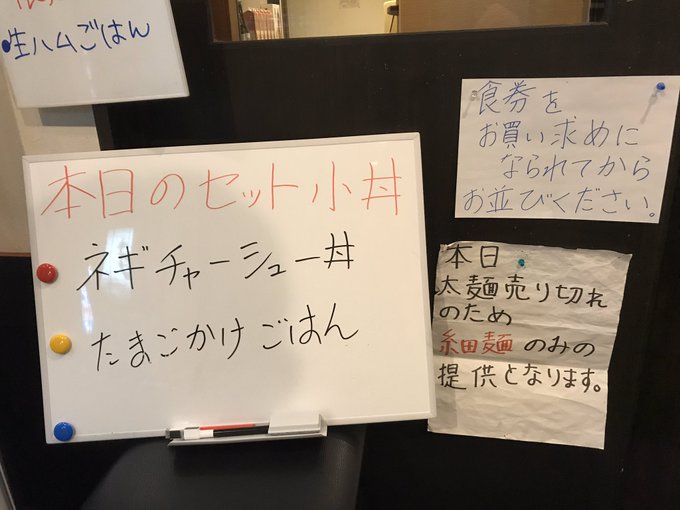 生ハムごはん
本日のセット小丼
ネギチャーシュー丼
たまごかけごはん
食券を
お買い求めに
なられてから
お並びください。
本日
太麺売り切れ
のため
細麺のみの
提供となります。